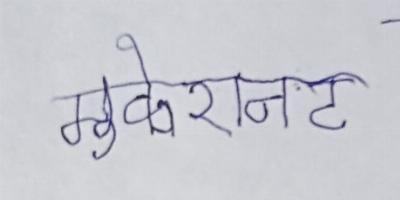 मुकेरानट